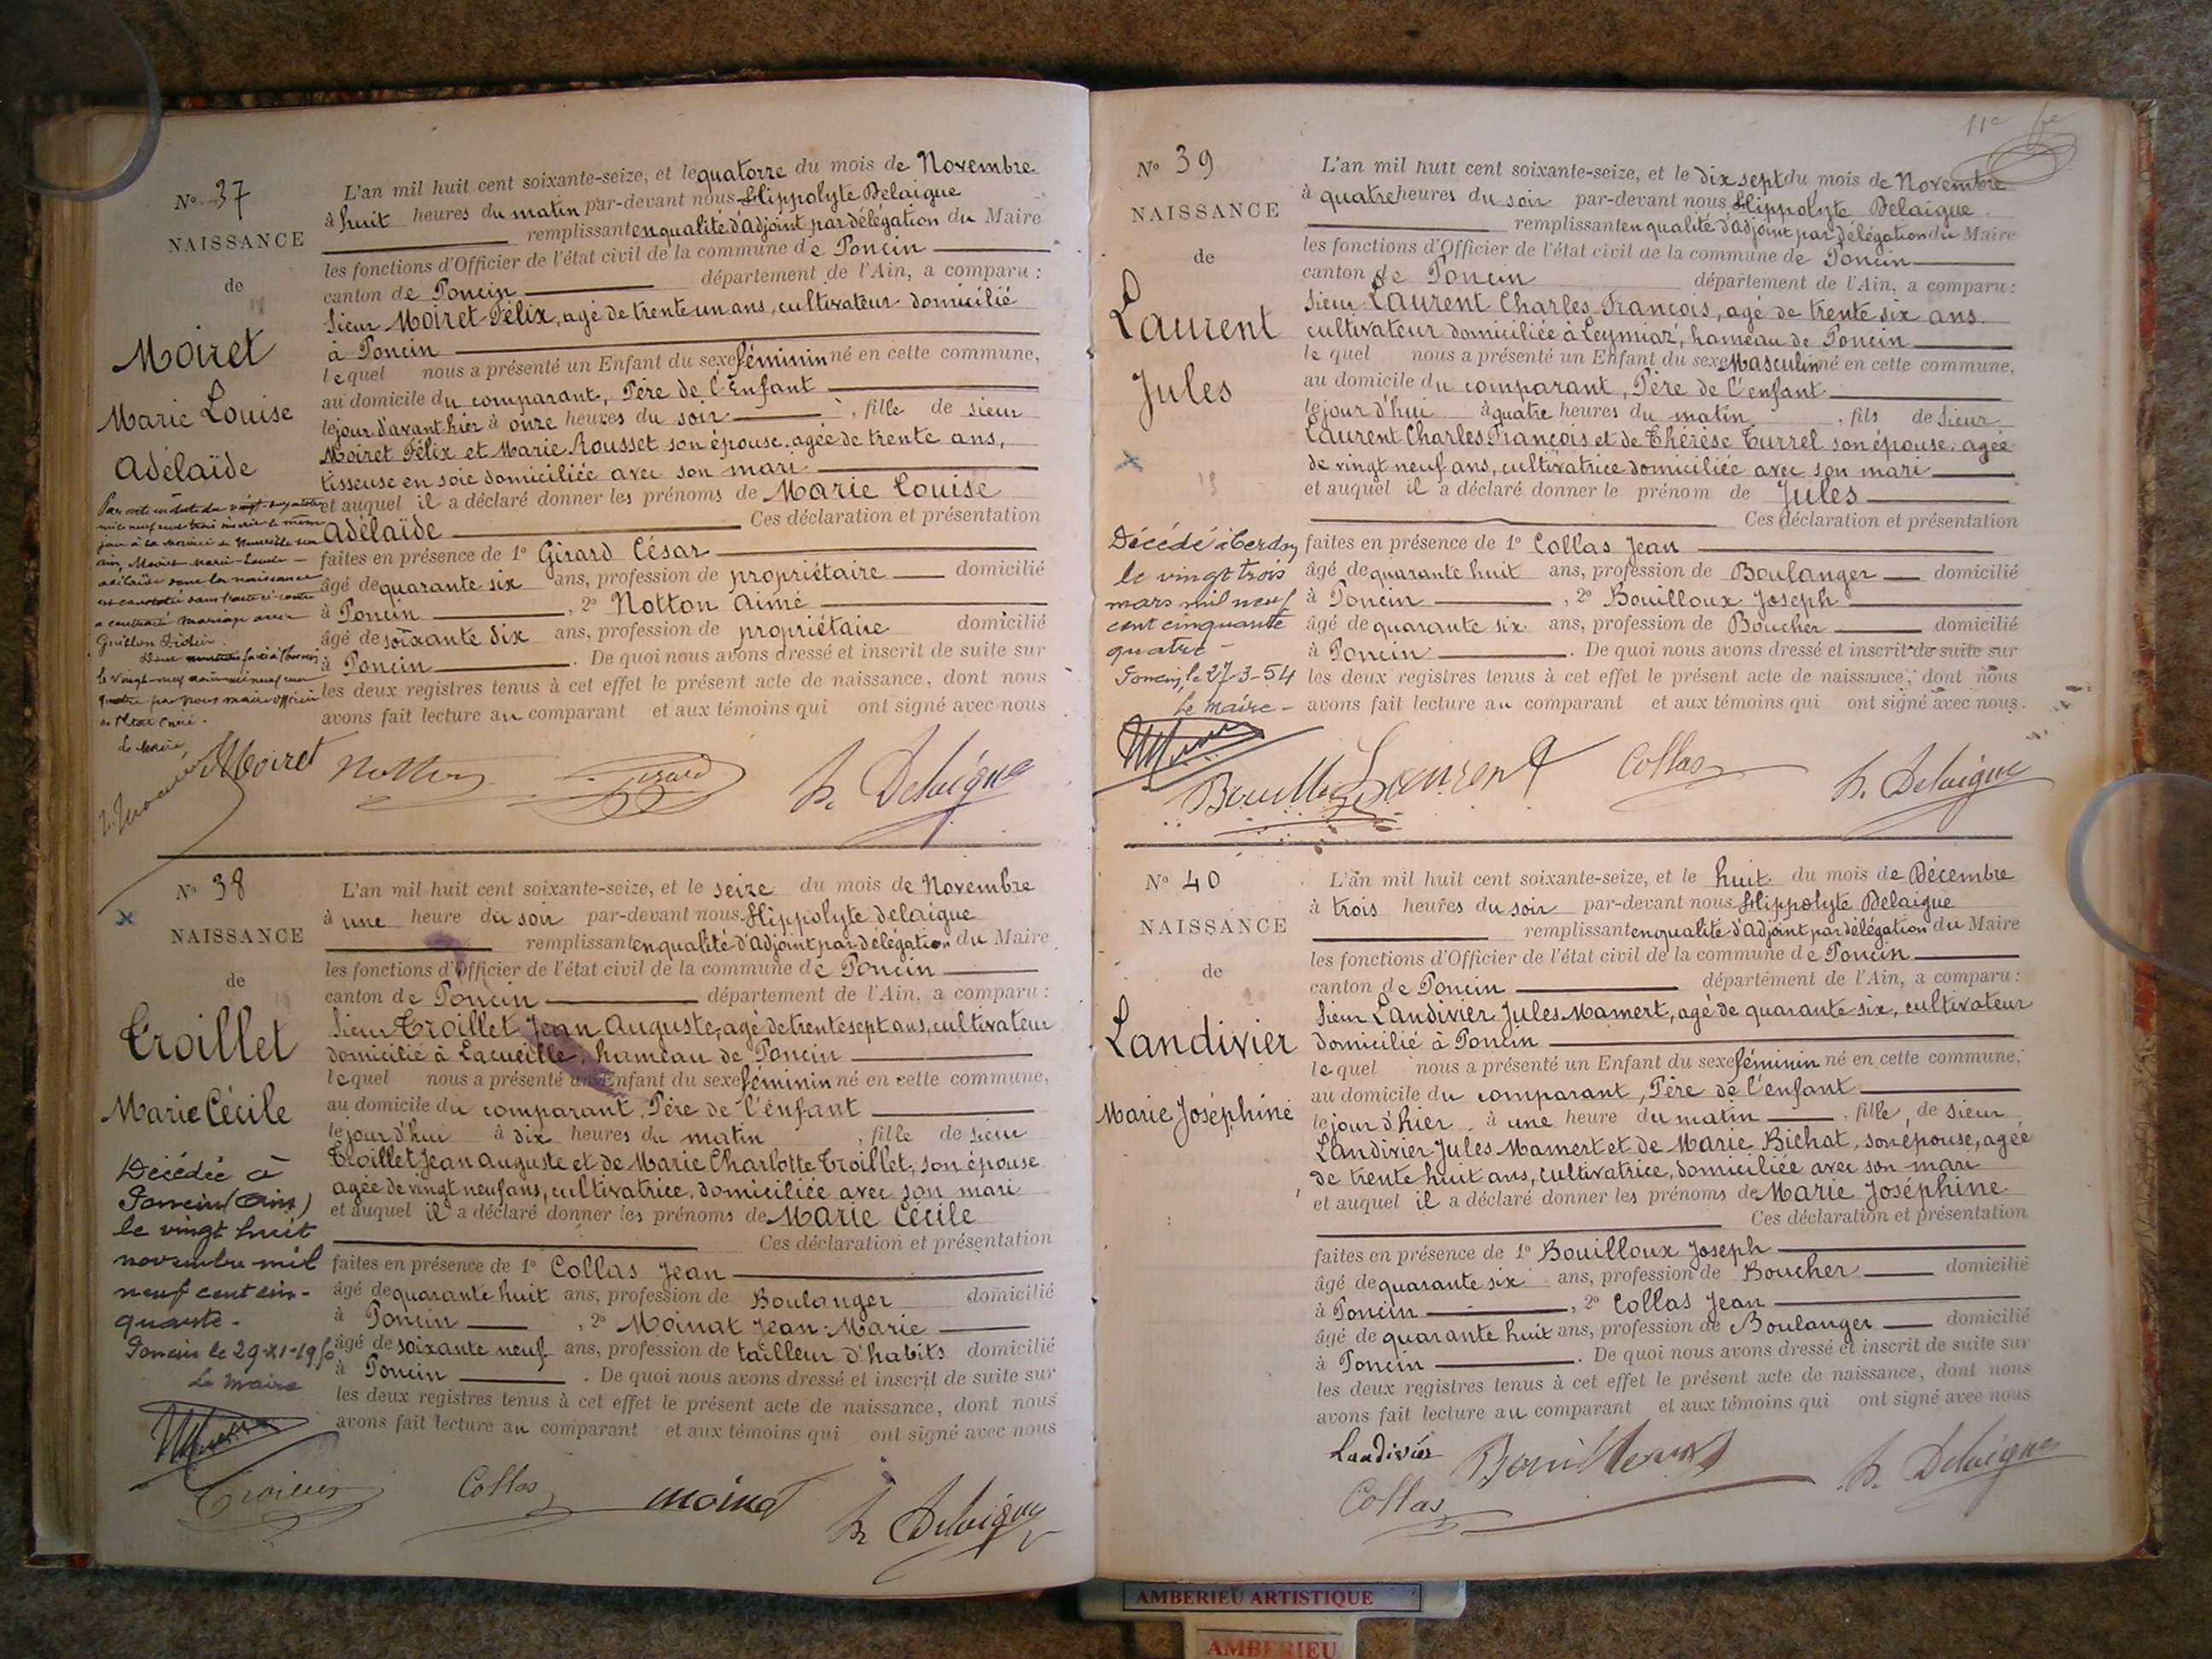 N° 37
NAISSANCE
de
Moiret
Marie Louise
Adélaïde
mariage avec
Guillon
de l'Etat Civil.
Le Maire,
L'an mil huit cent soixante-seize, et le quatorze du mois de Novembre
à huit heures du matin par-devant nous Hippolyte Delaigue
remplissant en qualité d'adjoint par délégation du Maire
les fonctions d'Officier de l'état civil de la commune de Poncin
canton de Poncin département de l'Ain, a comparu :
Sieur Moiret Félix, agé de trente un ans, cultivateur domicilié
à Poncin
lequel nous a présenté un Enfant du sexe féminin né en cette commune,
au domicile du comparant, Père de l'Enfant
le jour d'avant hier à onze heures du soir, fille de sieur
Moiret Félix et Marie Rousset son épouse, agée de trente ans,
tisseuse en soie domiciliée avec son mari
et auquel il a déclaré donner les prénoms de Marie Louise
Adélaïde Ces déclaration et présentation
faites en présence de 1° Girard César
âgé de quarante six ans, profession de propriétaire domicilié
à Poncin, 2° Notton Aimé
âgé de soixante six ans, profession de propriétaire domicilié
à Poncin. De quoi nous avons dressé et inscrit de suite sur
les deux registres tenus à cet effet le présent acte de naissance, dont nous
avons fait lecture au comparant et aux témoins qui ont signé avec nous
Moiret Notton Girard h. Delaigue
N° 38
NAISSANCE
de
Troillet
Marie Cécile
Décédée à
Poncin (Ain)
le vingt huit
novembre mil
neuf cent cin-
quante.
Poncin le 29-XI-1950
Le Maire
L'an mil huit cent soixante-seize, et le seize du mois de Novembre
à une heure du soir par-devant nous Hippolyte delaigue
remplissant en qualité d'adjoint par délégation du Maire
les fonctions d'Officier de l'état civil de la commune de Poncin
canton de Poncin département de l'Ain, a comparu :
Sieur Troillet Jean Auguste, agé de trente sept ans, cultivateur
domicilié à Lacueille, hameau de Poncin
lequel nous a présenté un Enfant du sexe féminin né en cette commune,
au domicile du comparant, Père de l'enfant
le jour d'hui à dix heures du matin, fille de sieur
Troillet Jean Auguste et de Marie Charlotte Troillet, son épouse
agée de vingt neuf ans, cultivatrice, domiciliée avec son mari
et auquel il a déclaré donner les prénoms de Marie Cécile
Ces déclaration et présentation
faites en présence de 1° Collas Jean
âgé de quarante huit ans, profession de Boulanger domicilié
à Poncin, 2° Moinat Jean-Marie
âgé de soixante neuf ans, profession de tailleur d'habits domicilié
à Poncin. De quoi nous avons dressé et inscrit de suite sur
les deux registres tenus à cet effet le présent acte de naissance, dont nous
avons fait lecture au comparant et aux témoins qui ont signé avec nous
Collas moinat h. Delaigue
N° 39
NAISSANCE
de
Laurent
Jules
Décédé à Cerdon
le vingt trois
mars mil neuf
cent cinquante
quatre -
Poncin, le 27-3-54
Le Maire -
L'an mil huit cent soixante-seize, et le dix sept du mois de Novembre
à quatre heures du soir par-devant nous Hippolyte Delaigue
remplissant en qualité d'adjoint par délégation du Maire
les fonctions d'Officier de l'état civil de la commune de Poncin
canton de Poncin département de l'Ain, a comparu :
Sieur Laurent Charles François, agé de trente six ans
cultivateur domiciliée à Leymiaz, hameau de Poncin
le quel nous a présenté un Enfant du sexe Masculin né en cette commune,
au domicile du comparant, Père de l'enfant
le jour d'hui à quatre heures du matin, fils de Sieur
Laurent Charles François et de Thérèse Turrel son épouse, agée
de vingt neuf ans, cultivatrice domiciliée avec son mari
et auquel il a déclaré donner le prénom de Jules
Ces déclaration et présentation
faites en présence de 1° Collas Jean
âgé de quarante huit ans, profession de Boulanger domicilié
à Poncin, 2° Bouilloux Joseph
âgé de quarante six ans, profession de Boucher domicilié
à Poncin. De quoi nous avons dressé et inscrit de suite sur
les deux registres tenus à cet effet le présent acte de naissance, dont nous
avons fait lecture au comparant et aux témoins qui ont signé avec nous.
Laurent Collas h. Delaigue
N° 40
NAISSANCE
de
Landivier
Marie Joséphine
L'an mil huit cent soixante-seize, et le huit du mois de Décembre
à trois heures du soir par-devant nous Hippolyte Delaigue
remplissant en qualité d'adjoint par délégation du Maire
les fonctions d'Officier de l'état civil de la commune de Poncin
canton de Poncin département de l'Ain, a comparu :
Sieur Landivier Jules Mamert, agé de quarante six, cultivateur
domicilié à Poncin
lequel nous a présenté un Enfant du sexe féminin né en cette commune,
au domicile du comparant, Père de l'enfant
le jour d'hier à une heure du matin, fille de sieur
Landivier Jules Mamert et de Marie Bichat, son épouse, agée
de trente huit ans, cultivatrice, domiciliée avec son mari
et auquel il a déclaré donner les prénoms de Marie Joséphine
Ces déclaration et présentation
faites en présence de 1° Bouilloux Joseph
âgé de quarante six ans, profession de Boucher domicilié
à Poncin, 2° Collas Jean
âgé de quarante huit ans, profession de Boulanger domicilié
à Poncin. De quoi nous avons dressé et inscrit de suite sur
les deux registres tenus à cet effet le présent acte de naissance, dont nous
avons fait lecture au comparant et aux témoins qui ont signé avec nous
Landivier Bouilloux h. Delaigue
Collas
AMBERIEU ARTISTIQUE
AMBERIEU